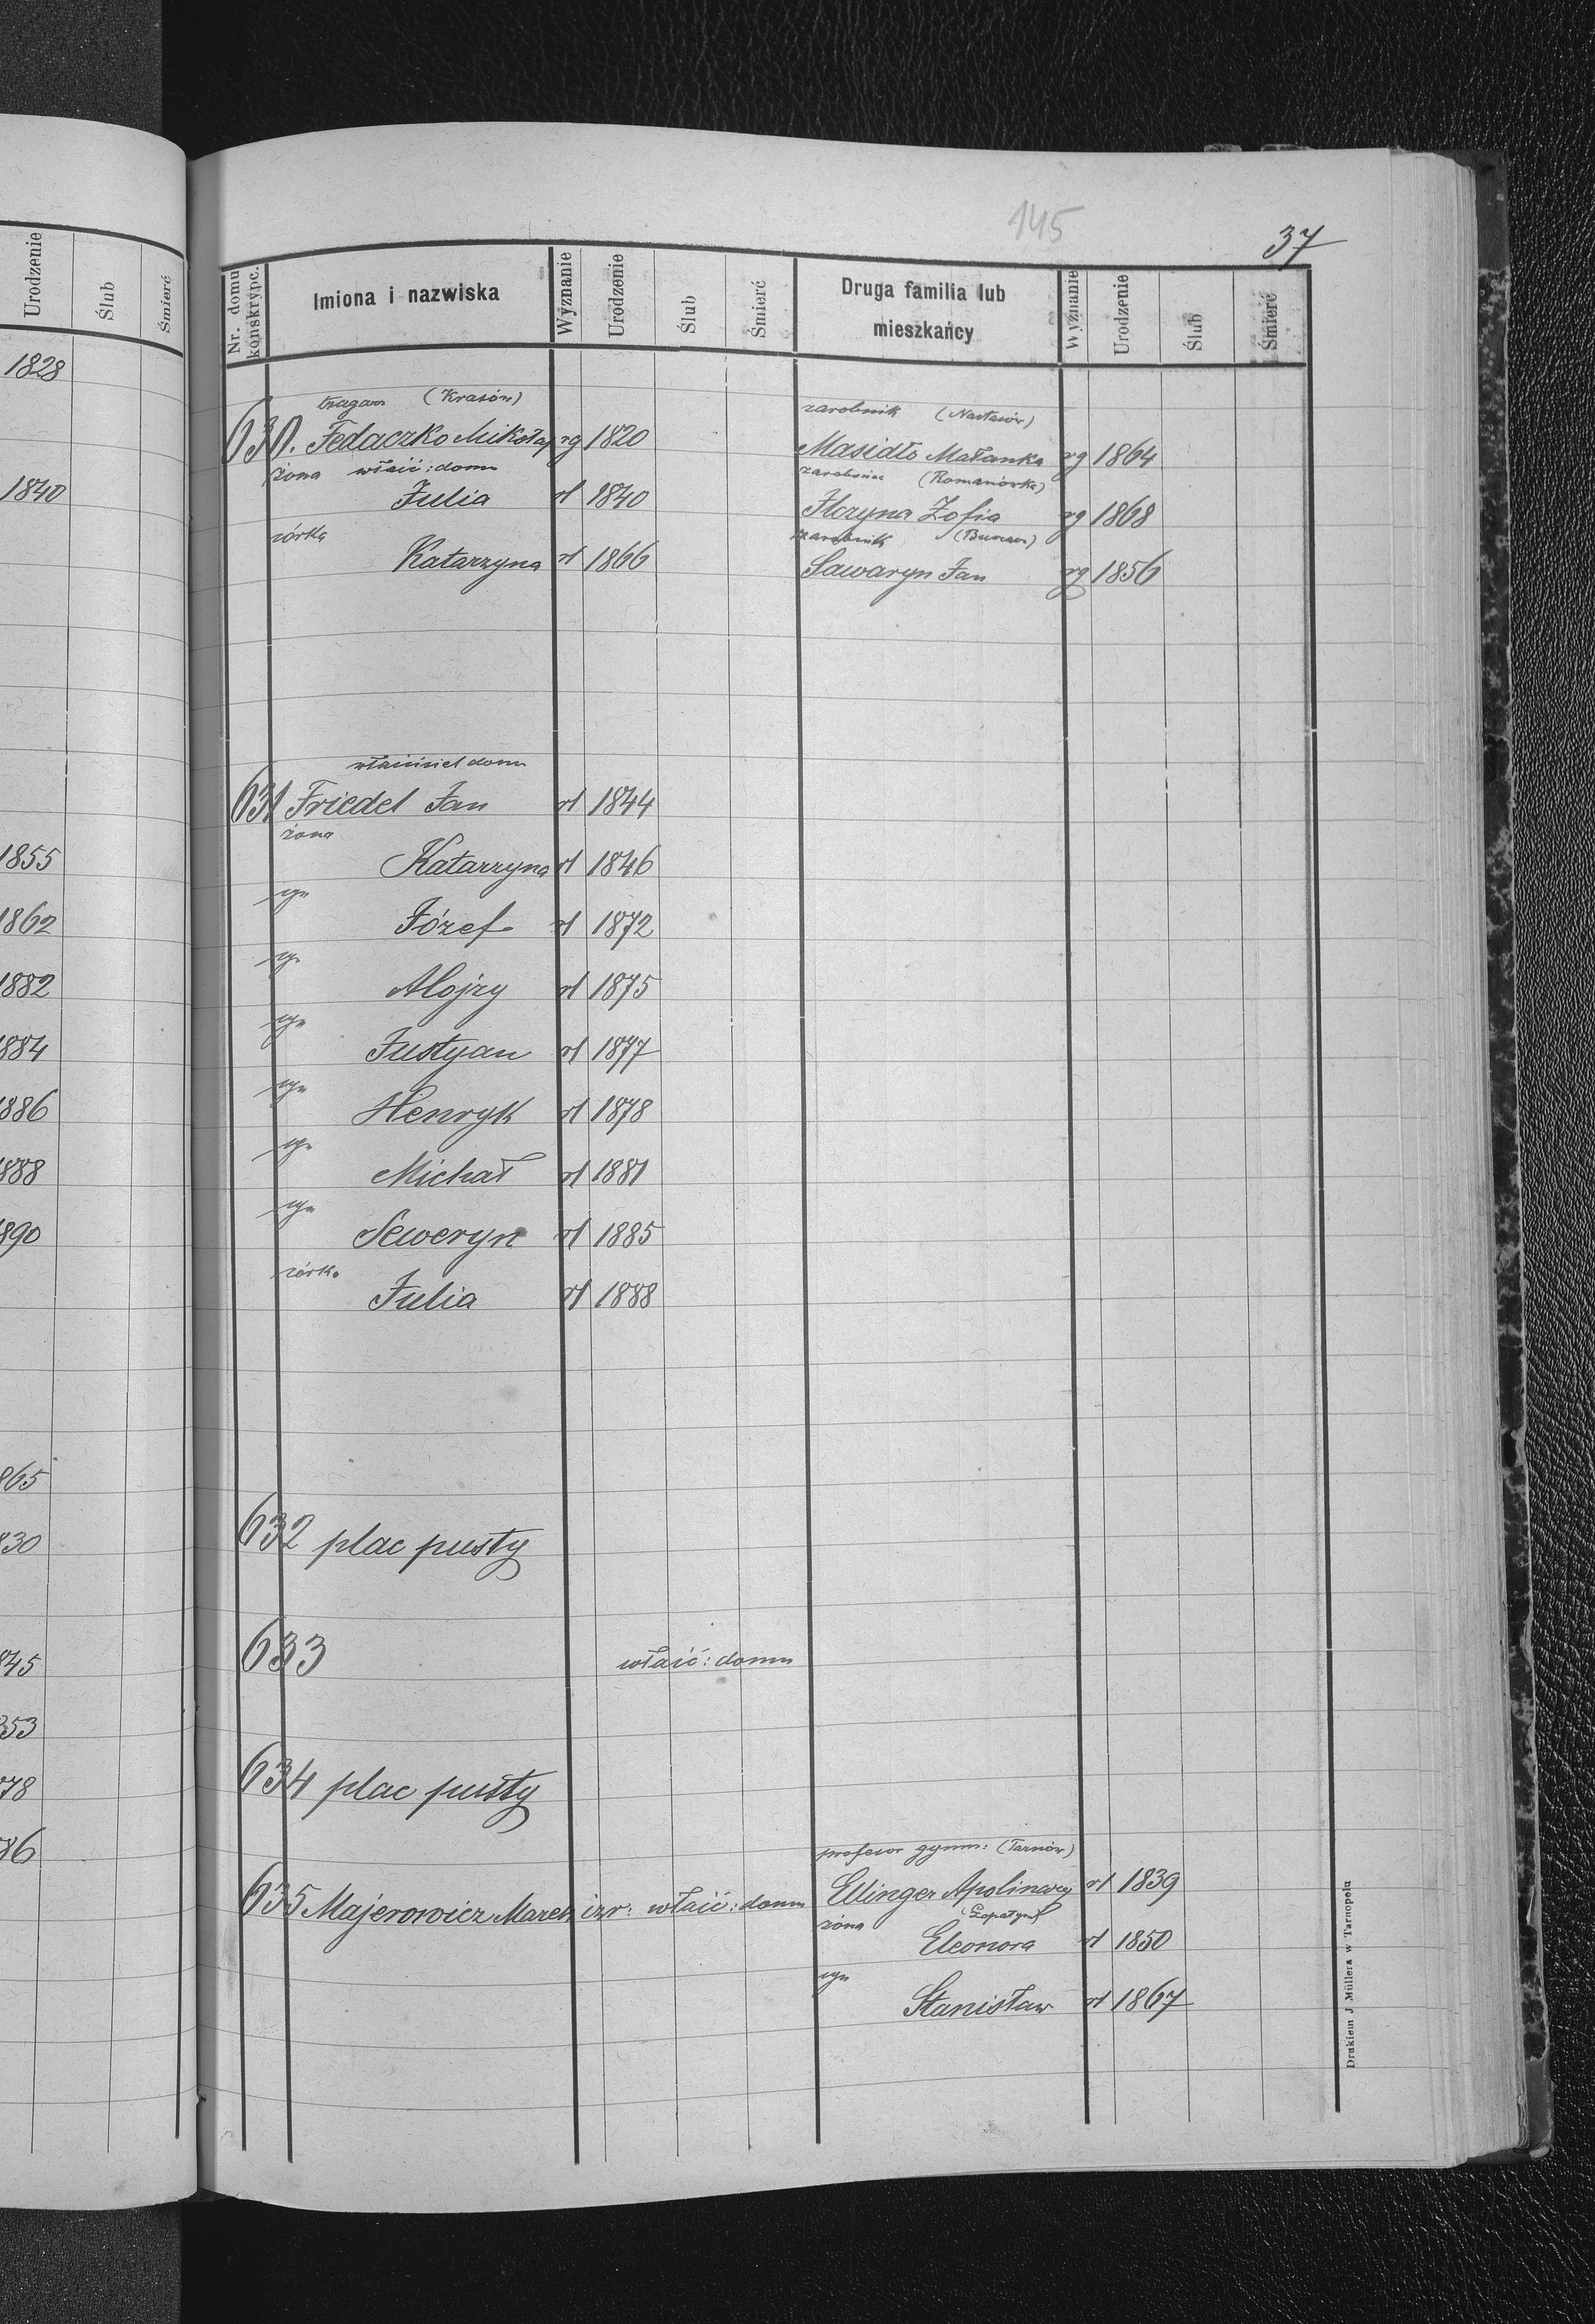 145
37
Urodzenie Ślub Śmierć
Nr. domu konskrypc. Imiona i nazwiska Wyznanie Urodzenie Ślub Śmierć Druga familia lub mieszkańcy Wyznanie Urodzenie Ślub Śmierć
1828
1840
1855
1862
1882
884
886
888
890
865
830
845
853
78
86
(Krasów)
630. Fedaczko Mikołaj rg 1820
żona właść: domu
Julia rł 1840
córka
Katarzyna rł 1866
zarobnik (Nastasów)
Masidło Małanka rg 1864
zarobnica (Romanówka)
Ilczyna Zofia rg 1868
zarobnik
Sawaryn Jan rg 1856
właściciel domu
631 Friedel Jan rł 1844
żona
Katarzyna rł 1846
syn
Józef rł 1872
syn
Alojzy rł 1875
syn
Justyan rł 1877
syn
Henryk rł 1878
syn
Michał rł 1881
syn
Seweryn rł 1885
córka
Julia rł 1888
632 plac pusty
633 właść: domu
634 plac pusty
635 Majerowicz Marek izr: właść: domu
profesor gymn: (Tarnów)
Ellinger Apolinary rł 1839
żona (Łopatyn)
Eleonora rł 1850
syn
Stanisław rł 1867
Drukiem J. Müllera w Tarnopolu